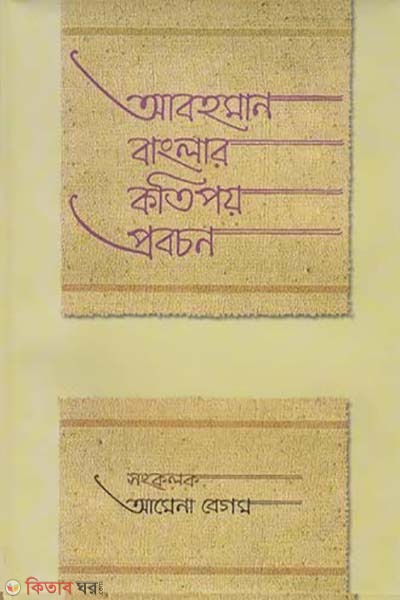 আবহমান
বাংলার
কতিপয়
প্রবচন
সংকলক
আমেনা বেগম
কিতাব ঘর